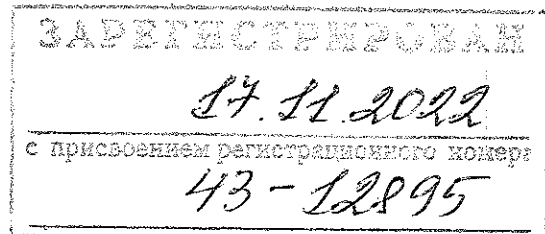 ЗАРЕГИСТРИРОВАН
17.11.2022
с присвоением регистрационного номера
43-12895